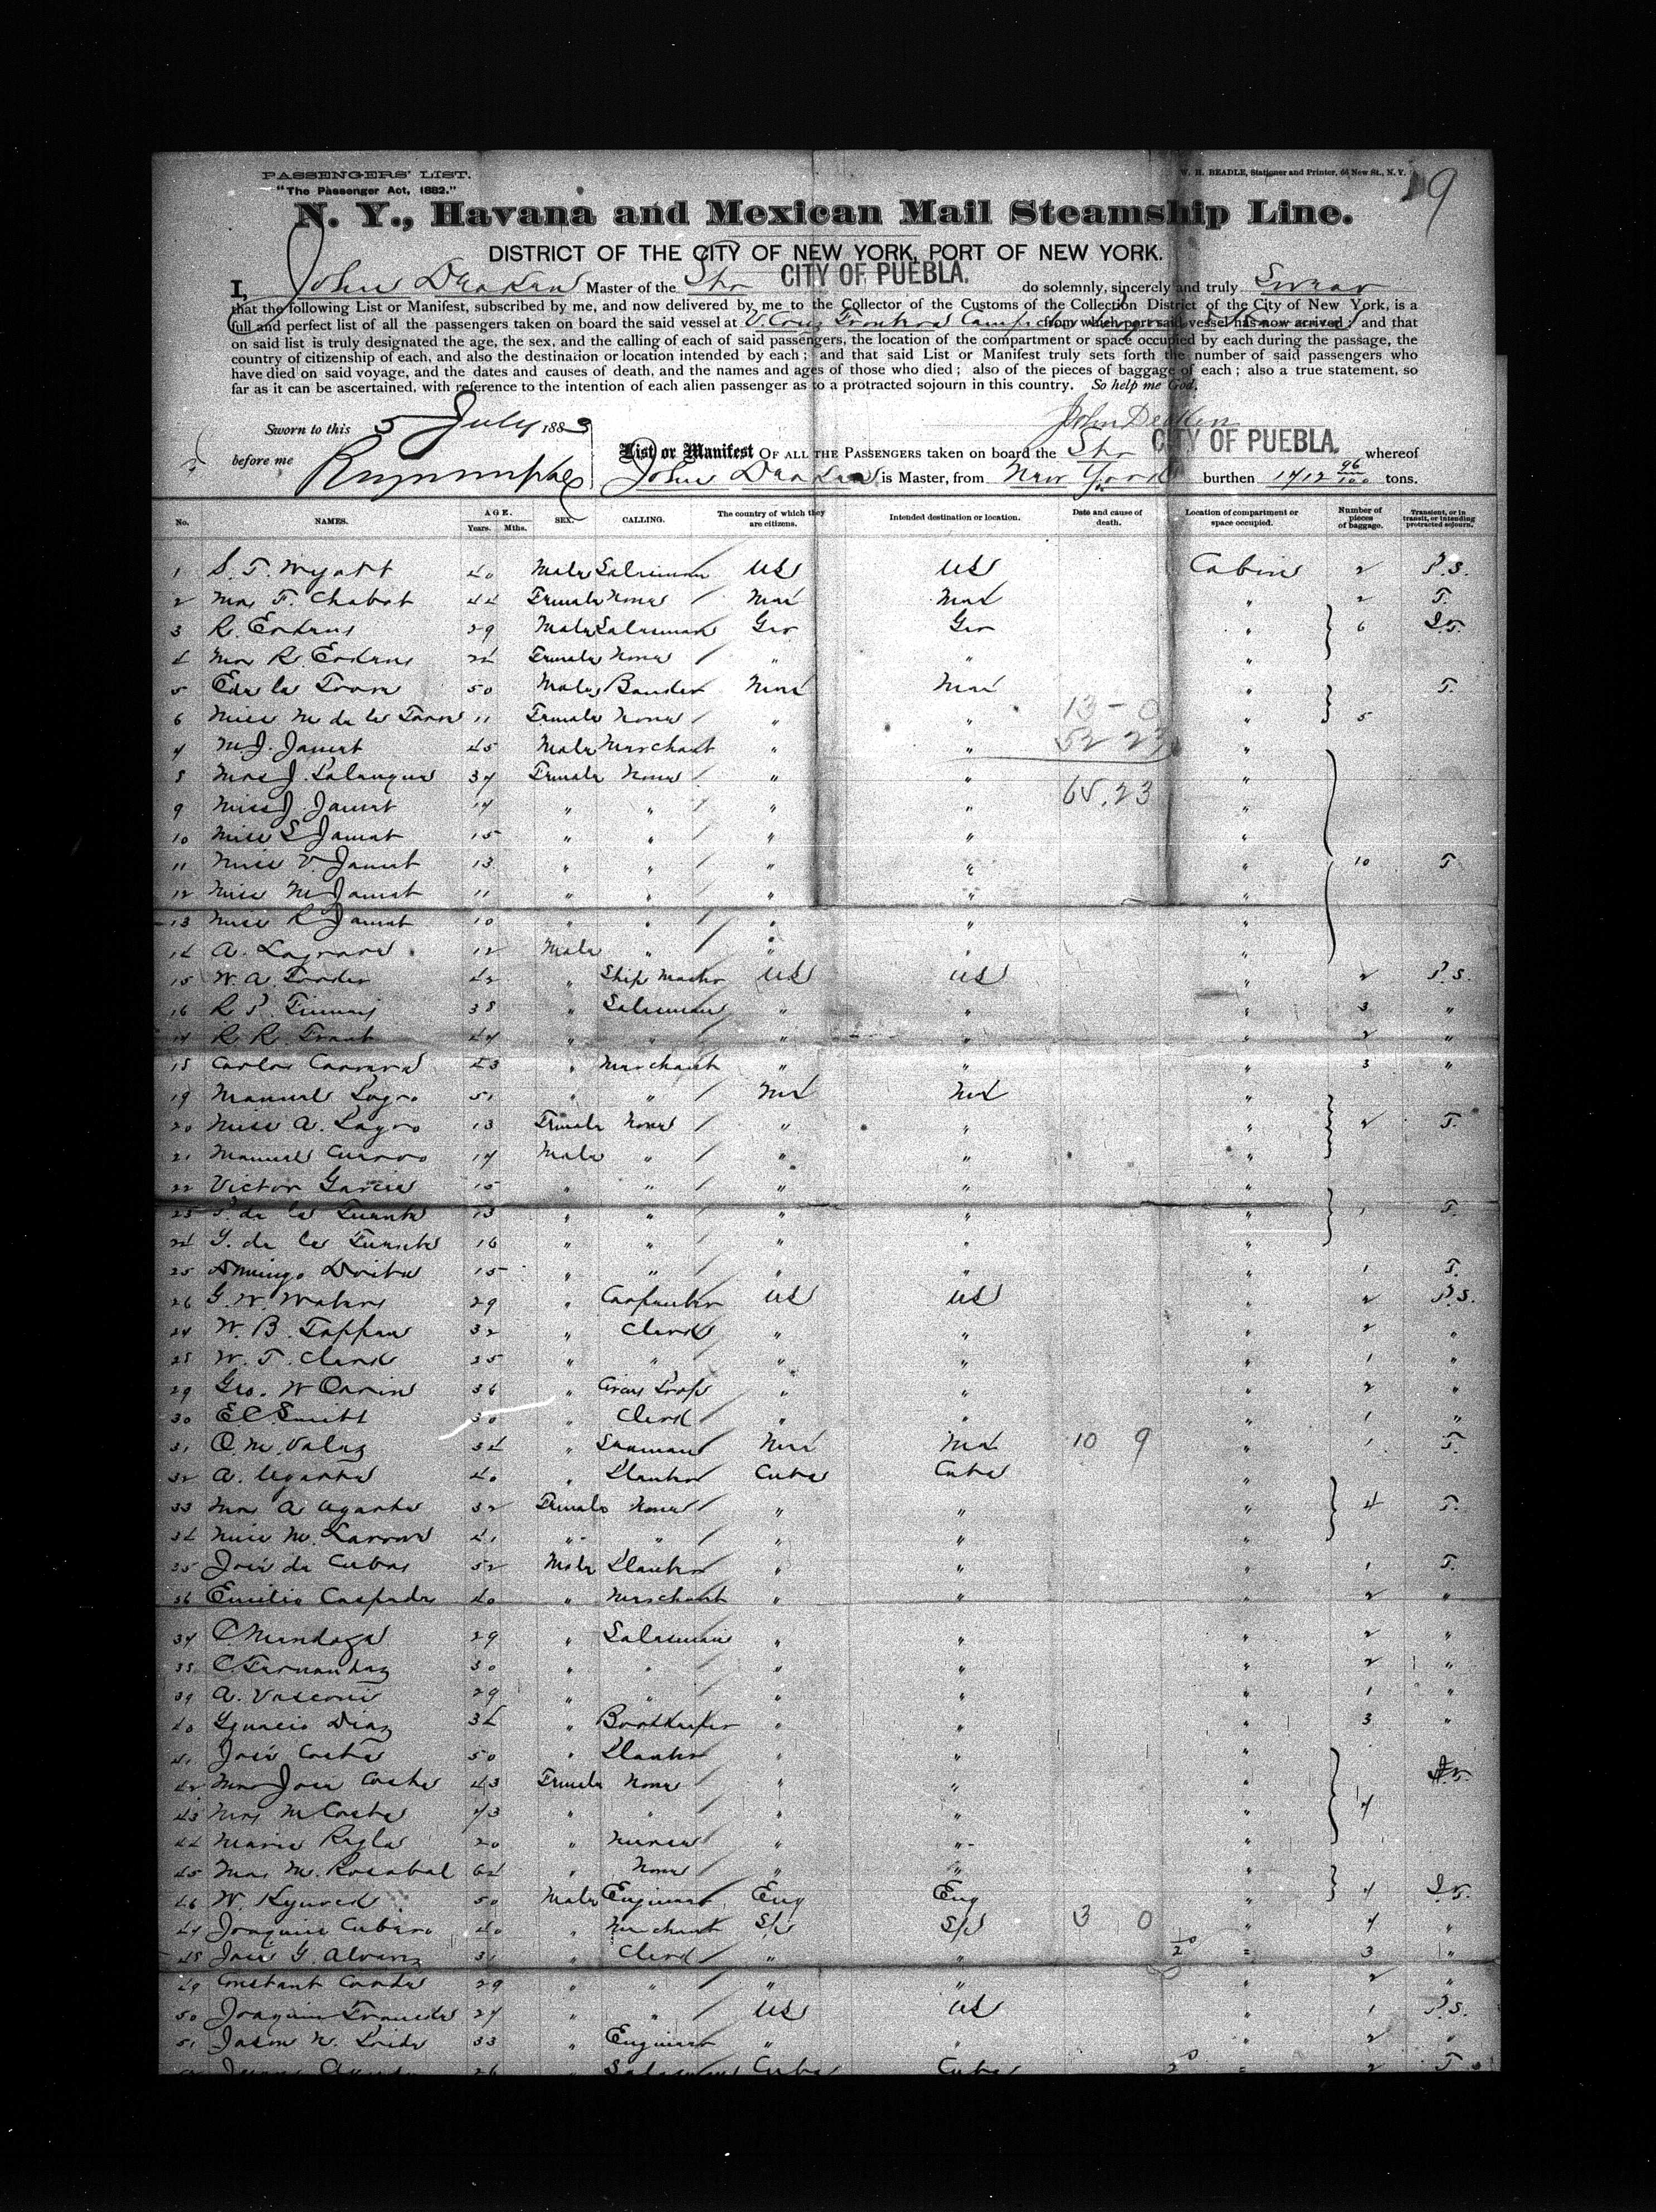 PASSENGERS' LIST.
"The Passenger Act, 1882."
W. H. BEADLE, Stationer and Printer, 64 New St., N. Y.
9
N. Y., Havana and Mexican Mail Steamship Line.
DISTRICT OF THE CITY OF NEW YORK, PORT OF NEW YORK.
I, John Deaken Master of the Str CITY OF PUEBLA. do solemnly, sincerely and truly Swear
that the following List or Manifest, subscribed by me, and now delivered by me to the Collector of the Customs of the Collection District of the City of New York, is a
full and perfect list of all the passengers taken on board the said vessel at V. Cruz Frontera from which port said vessel has now arrived; and that
on said list is truly designated the age, the sex, and the calling of each of said passengers, the location of the compartment or space occupied by each during the passage, the
country of citizenship of each, and also the destination or location intended by each; and that said List or Manifest truly sets forth the number of said passengers who
have died on said voyage, and the dates and causes of death, and the names and ages of those who died; also of the pieces of baggage of each; also a true statement, so
far as it can be ascertained, with reference to the intention of each alien passenger as to a protracted sojourn in this country. So help me God.
Sworn to this 5 July 1883
John Deaken
before me
List or Manifest OF ALL THE PASSENGERS taken on board the Str CITY OF PUEBLA. whereof
John Deaken is Master, from New York burthen 1712 96/100 tons.
No. NAMES. AGE. Years. Mths. SEX. CALLING. The country of which they are citizens. Intended destination or location. Date and cause of death. Location of compartment or space occupied. Number of pieces of baggage. Transient, or in transit, or intending protracted sojourn.
1 S. T. Wyatt 40 Male Salesman US US Cabin 2 P.S.
2 Mrs F. Chabot 44 Female None Mex Mex " 2 T.
3 R. 29 Male Salesman Ger Ger " 6
4 Mrs R. 24 Female None " " "
5 50 Male Mex Mex " T.
6 Miss M de la 11 Female None " " " 5
13-0
7 M. J. Jamet 45 Male Merchant " " "
52 23
8 Mrs J. 37 Female None " " "
65.23
9 Miss J. Jamet 17 " " " " "
10 Miss S Jamet 15 " " " " "
11 Miss V. Jamet 13 " " " " " 10 T
12 Miss M Jamet 11 " " " " "
13 Miss R Jamet 10 " " " " "
14 A. 12 Male " " " "
15 W. A. 42 " Ship Master US US " 2 P.S.
16 R. P. 38 " Salesman " " " 3 "
17 R. R. 47 " " " " " 2 "
18 Carlos 43 " Merchant " " " 3 "
19 Manuel 51 " " Mex Mex "
20 Miss A. 13 Female None " " " 2 T.
21 Manuel 17 Male " " " "
22 Victor Garcia 15 " " " " "
23 de la Fuente 13 " " " " " 1 T.
24 Y. de la Fuente 16 " " " " "
25 15 " " " " " 1 T.
26 G. W. Waters 29 " Carpenter US US " 2 P.S.
27 W. B. Tappan 32 " Clerk " " " 2 "
28 W. T. Clark 25 " " " " " 1 "
29 Geo. W Orrin 36 " Circus Prop " " " 2 "
30 E. C. Smith 30 " Clerk " " " 1 "
31 O. M. Velez 34 " Seaman Mex Mex 10 9 " 1 T.
32 A. Ugarte 40 " Planter Cuba Cuba "
33 Mrs A Ugarte 32 Female None " " " 4 T.
34 Miss M. 41 " " " " "
35 José de Cubas 52 Male Planter " " " 1 T.
36 Emilio 40 " Merchant " " " 2 "
37 C. Mendoza 29 " Salesman " " " 2 "
38 C. Fernandez 30 " " " " " 2 "
39 A. Vasconi 29 " " " " " 1 "
40 Ygnacio Diaz 34 " Bookkeeper " " " 3 "
41 José Costa 50 " Planter " " "
42 Mrs José Costa 43 Female None " " "
43 Mrs M Costa 73 " " " " " 7
44 Maria Regla 20 " Nurse " " "
45 Mrs M. Rosabal 64 " None " " "
46 W. 50 Male Engineer Eng Eng " 7
47 Joaquin 40 " Merchant Sp Sp 3 0 " 7 "
48 José G. Alvarez 31 " Clerk " " " 3 "
49 Constant 29 " " " " " 2 "
50 Joaquin 27 " " US US " 1 P.S.
51 Jason W. 33 " Engineer " " " 2 "
26 " Salesman Cuba Cuba 2 T